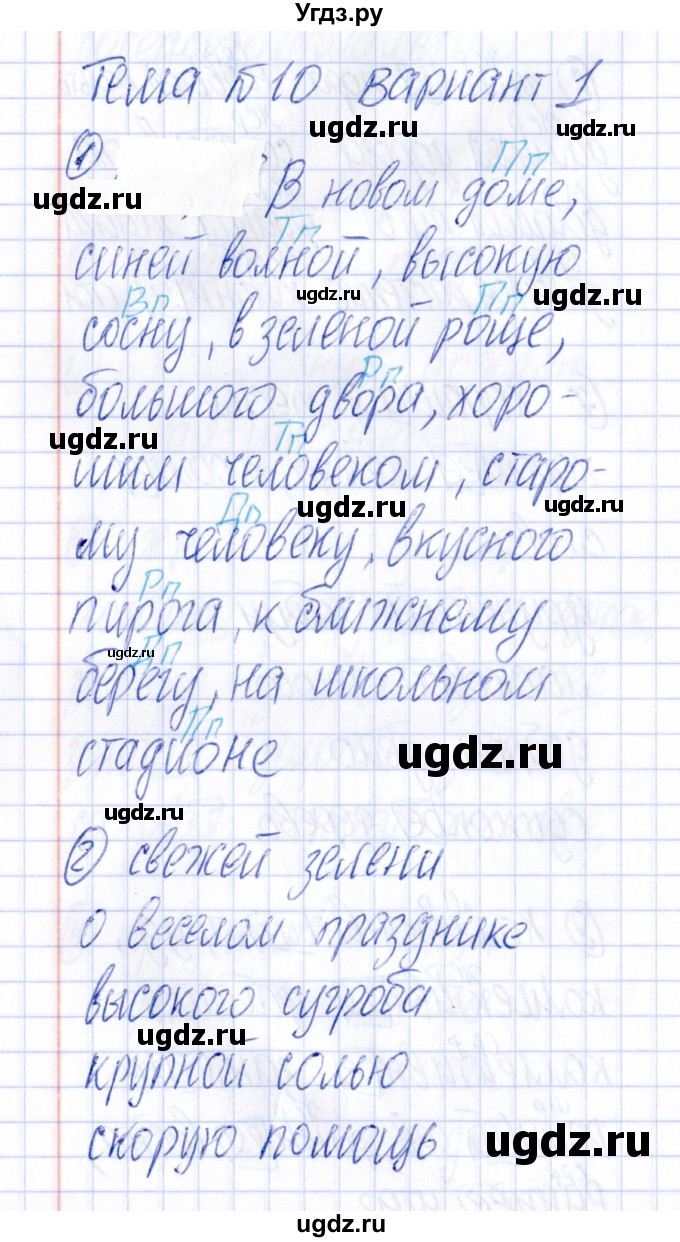 Угдз.ру
Тема №10 вариант 1
ugdz.ru
① Пп
ugdz.ru В новом доме,
Тп
синей волной, высокую
ugdz.ru ugdz.ru
Вп Пп
сосну, в зеленой роще,
Рп
большого двора, хоро-
ugdz.ru Тп
шим человеком, старо-
ugdz.ru ugdz.ru
Дп
му человеку, вкусного
Рп
пирога, к ближнему
ugdz.ru Дп
берегу, на школьном
Пп
стадионе ugdz.ru
ugdz.ru
② свежей зелени
о веселом празднике
высокого сугроба
ugdz.ru
крупной солью
скорую помощь ugdz.ru
ugdz.ru